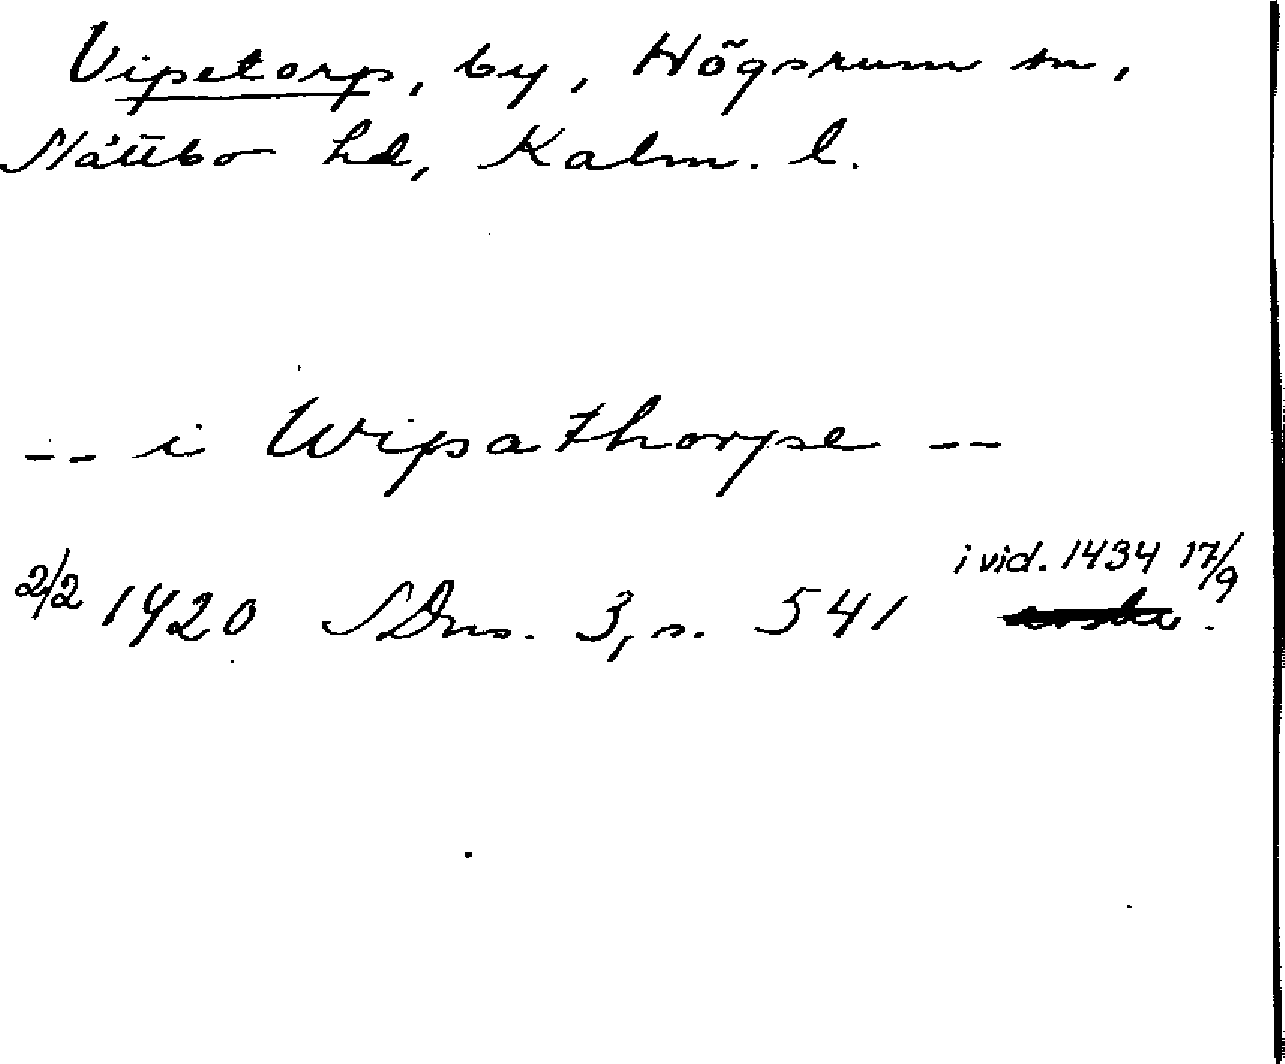 Vipetorp, by, Högsrum sn,
Slättbo hd, Kalm. l.
-- i Wipathorpe --
i vid. 1434 17/9
2/2 1420 SDns. 3, s. 541